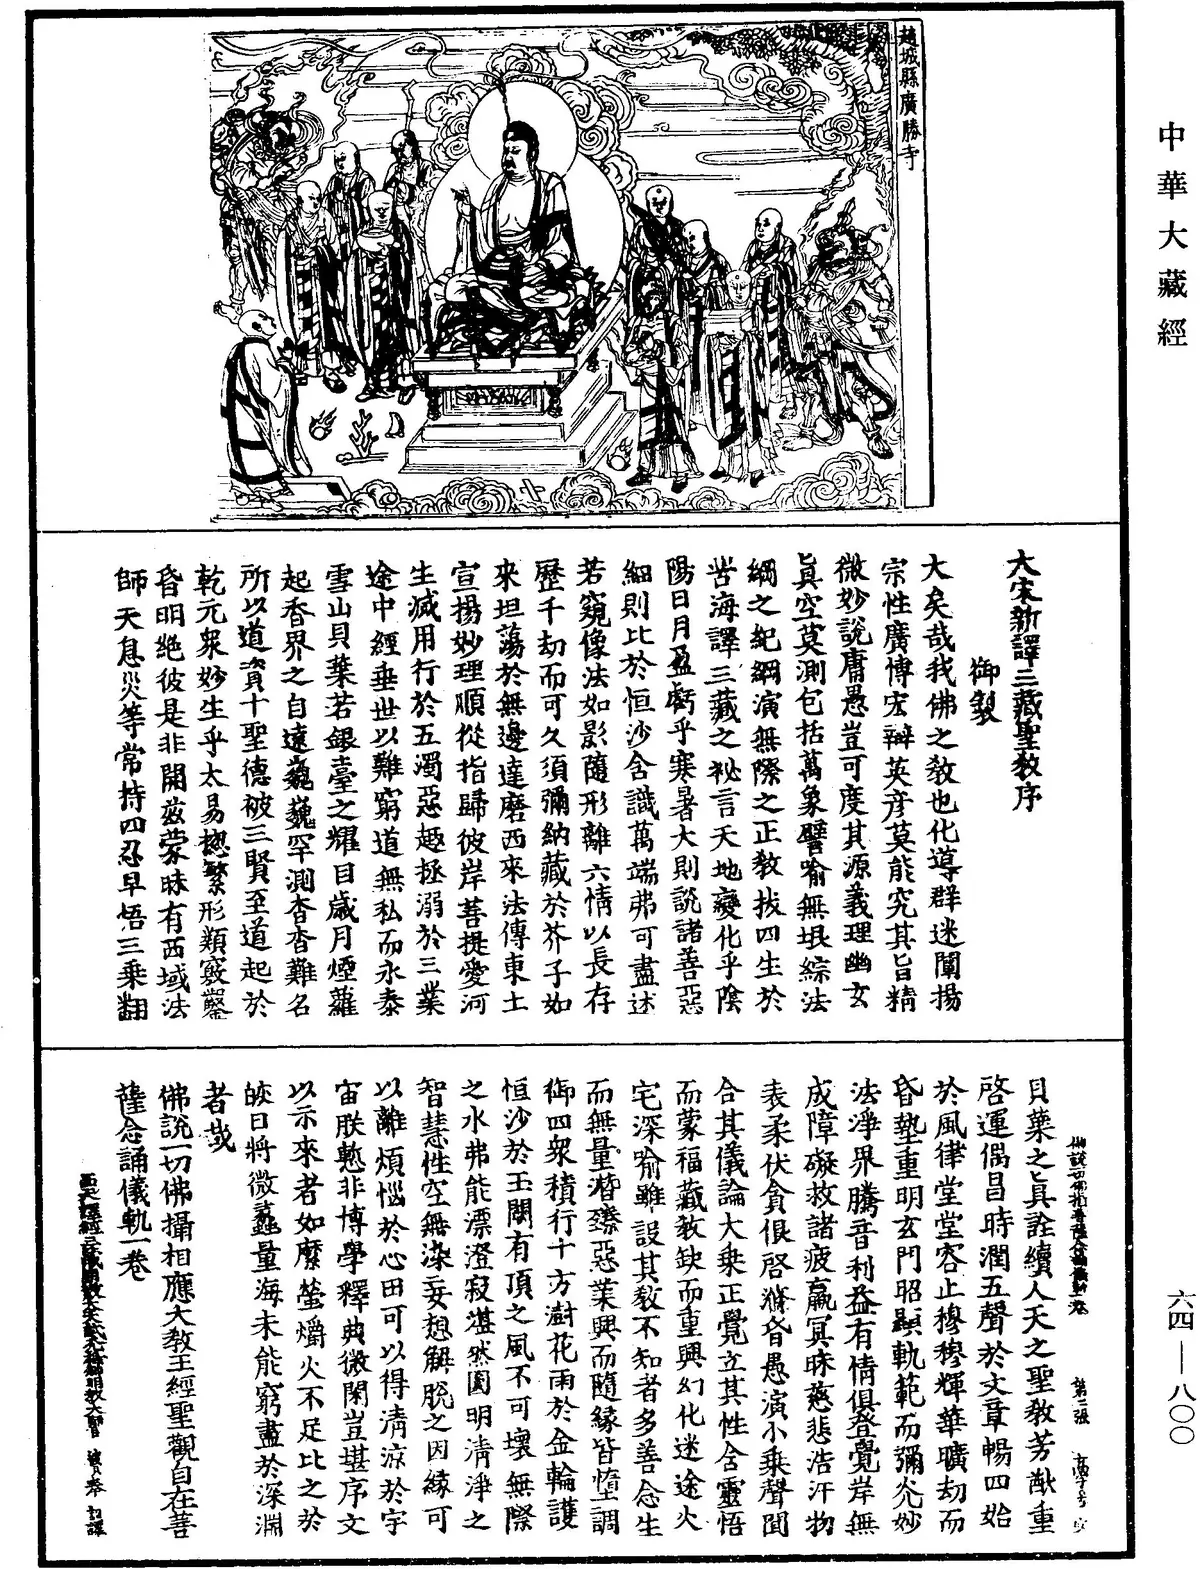 中華大藏經
趙城縣廣勝寺
大宋新譯三藏聖教序
御製
大矣哉我佛之教也化導群迷闡揚
宗性廣博宏辯英彥莫能究其旨精
微妙說庸愚豈可度其源義理幽玄
真空莫測包括萬象譬喻無垠綜法
綱之紀綱演無際之正教拔四生於
苦海譯三藏之祕言天地變化乎陰
陽日月盈虧乎寒暑大則說諸善惡
細則比於恒沙含識萬端弗可盡述
若窺像法如影隨形離六情以長存
歷千劫而可久須彌納藏於芥子如
來坦蕩於無邊達磨西來法傳東土
宣揚妙理順從指歸彼岸菩提愛河
生滅用行於五濁惡趣拯溺於三業
途中經垂世以難窮道無私而永泰
雪山貝葉若銀臺之耀目歲月煙蘿
起香界之自遠巍巍罕測杳杳難名
所以道資十聖德被三賢至道起於
乾元衆妙生乎太易揔繁形類竅鑿
昏明絕彼是非開茲蒙昧有西域法
師天息災等常持四忍早悟三乘翻
貝葉之真詮續人天之聖教芳猷重
啓運偶昌時潤五聲於文章暢四始
於風律堂堂容止穆穆輝華曠劫而
昏墊重明玄門昭顯軌範而彌光妙
法淨界騰音利益有情俱登覺岸無
成障礙救諸疲羸冥昧慈悲浩汗物
表柔伏貪佷啓滌昏愚演小乘聲聞
合其儀論大乘正覺立其性含靈悟
而蒙福藏教缺而重興幻化迷途火
宅深喻雖設其教不知者多善念生
而無量潛臻惡業興而隨緣皆墮調
御四衆積行十方澍花雨於金輪護
恒沙於玉闕有頂之風不可壞無際
之水弗能漂澄寂湛然圓明清淨之
智慧性空無染妄想解脫之因緣可
以離煩惱於心田可以得清涼於宇
宙朕慙非博學釋典微閑豈堪序文
以示來者如縻螢爝火不足比之於
皎日將微蠡量海未能窮盡於深淵
者哉
佛說一切佛攝相應大教王經聖觀自在菩
薩念誦儀軌一卷
六四—八〇〇